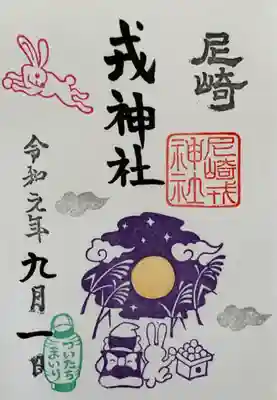 尼崎
戎神社
尼崎戎
神社
令和元年九月一日
ついたち
まいり